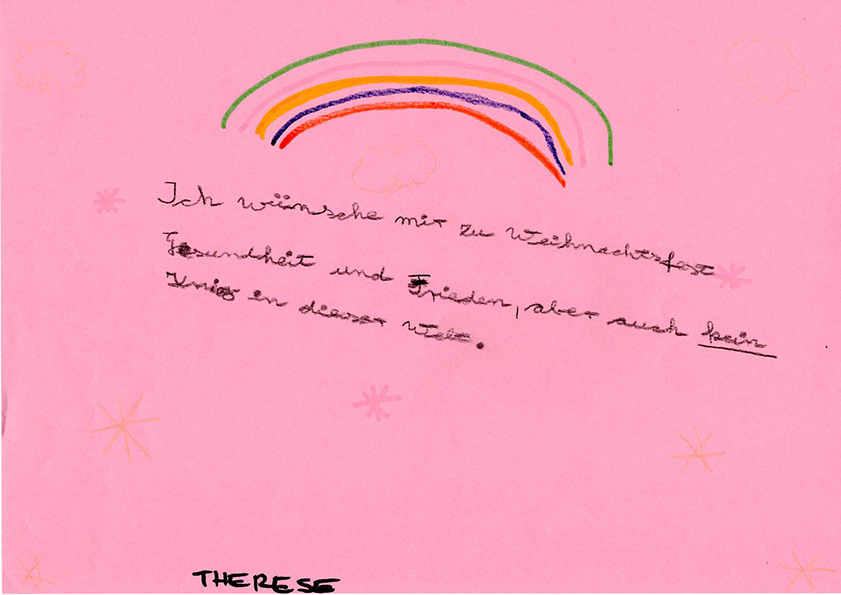 Ich wünsche mir zu Weihnachtsfest
Gesundheit und Frieden, aber auch kein
in dieser Welt.
THERESE